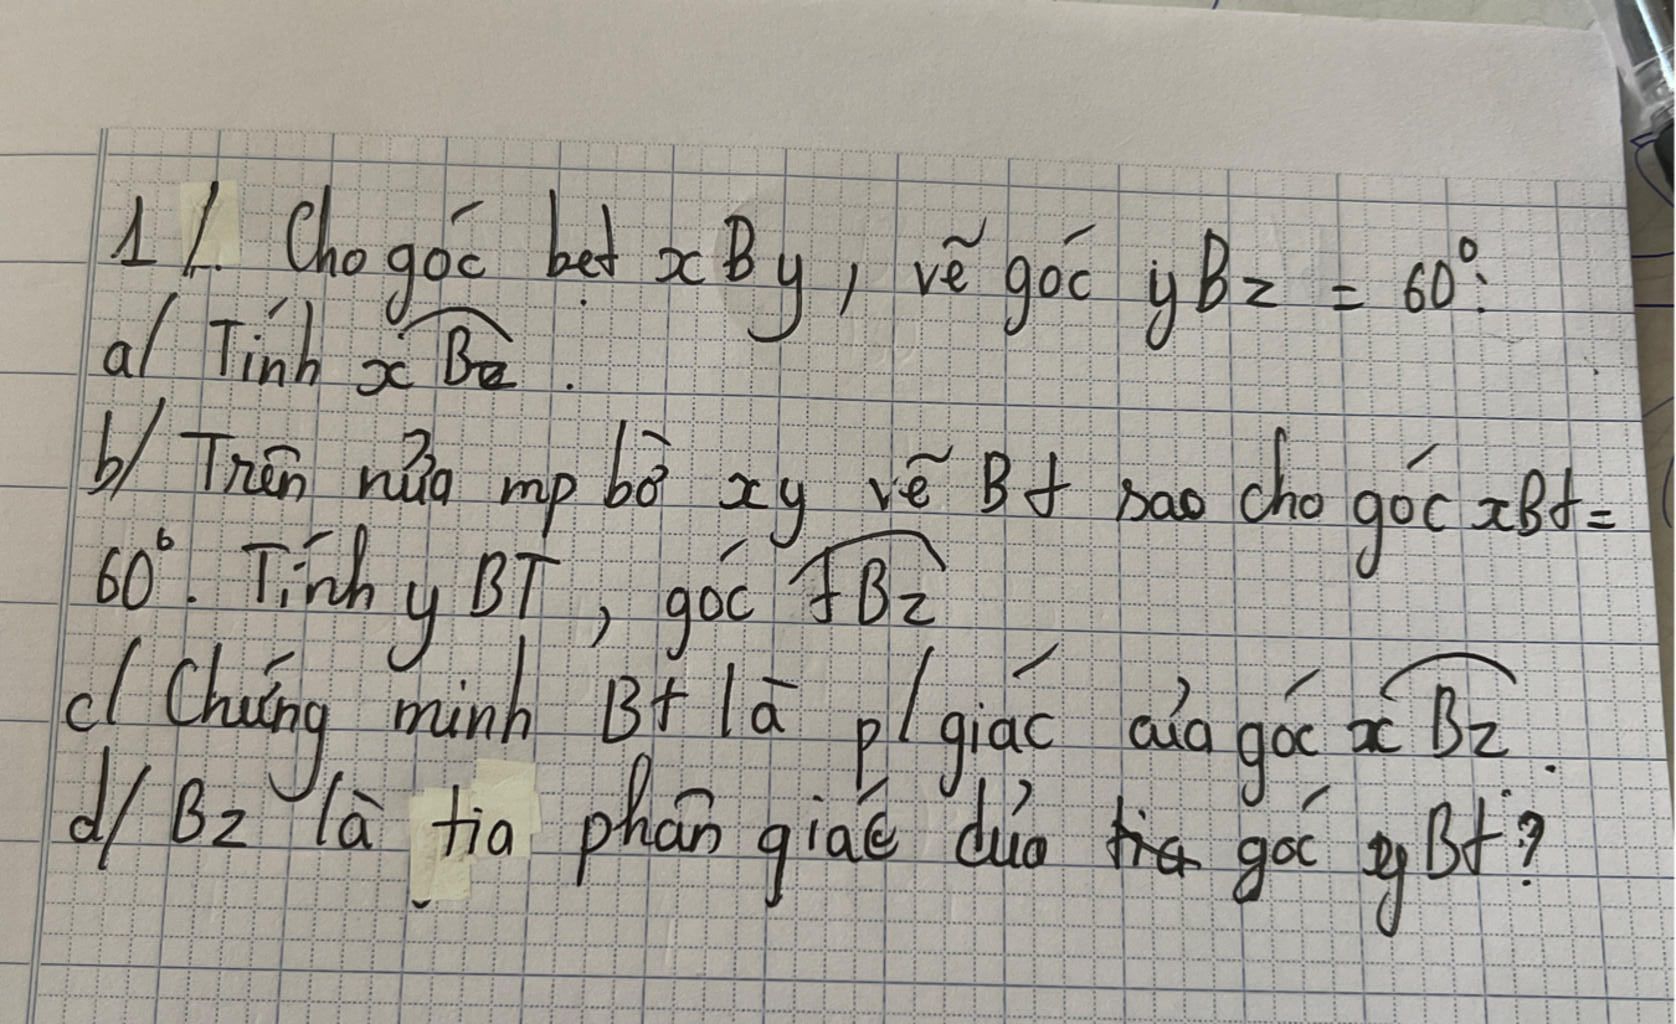 1/. Cho góc bẹt xBy, vẽ góc yBz = 60°:
a/ Tính xBz.
b/ Trên nửa mp bờ xy vẽ Bt sao cho góc xBt =
60°. Tính yBT, góc tBz
c/ Chứng minh Bt là p/giác của góc xBz.
d/ Bz là tia phân giác của tia góc yBt?